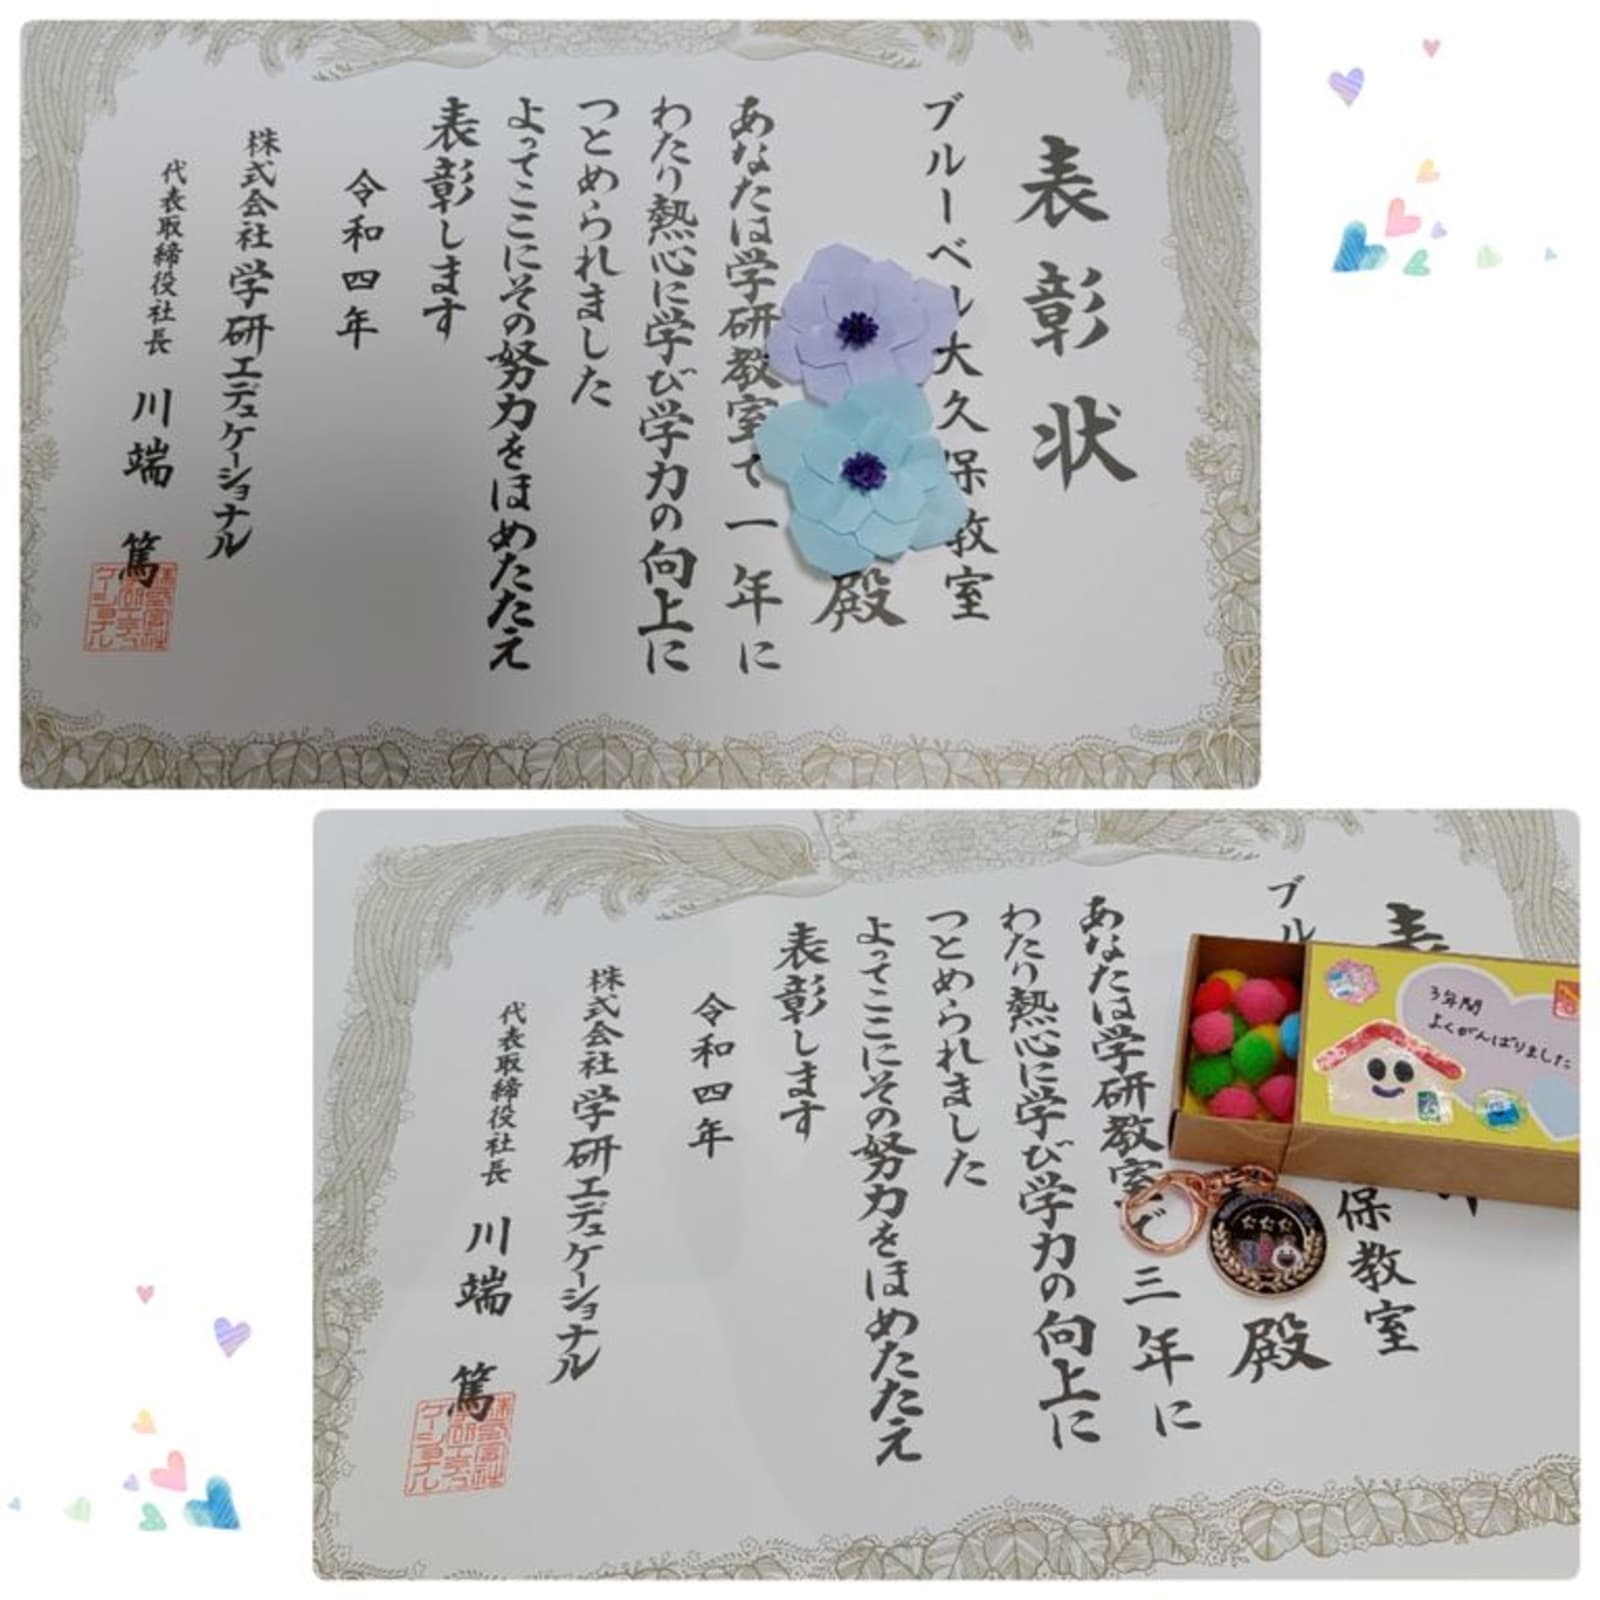 表彰状
ブルーベル大久保教室
殿
あなたは学研教室で一年に
わたり熱心に学び学力の向上に
つとめられました
よってここにその努力をほめたたえ
表彰します
令和四年
株式会社学研エデュケーショナル
代表取締役社長 川端 篤
株式会社学研エデュケーショナル
表
ブル
保教室
殿
3年間
よくがんばりました
あなたは学研教室で三年に
わたり熱心に学び学力の向上に
つとめられました
よってここにその努力をほめたたえ
表彰します
令和四年
株式会社学研エデュケーショナル
代表取締役社長 川端 篤
株式会社学研エデュケーショナル